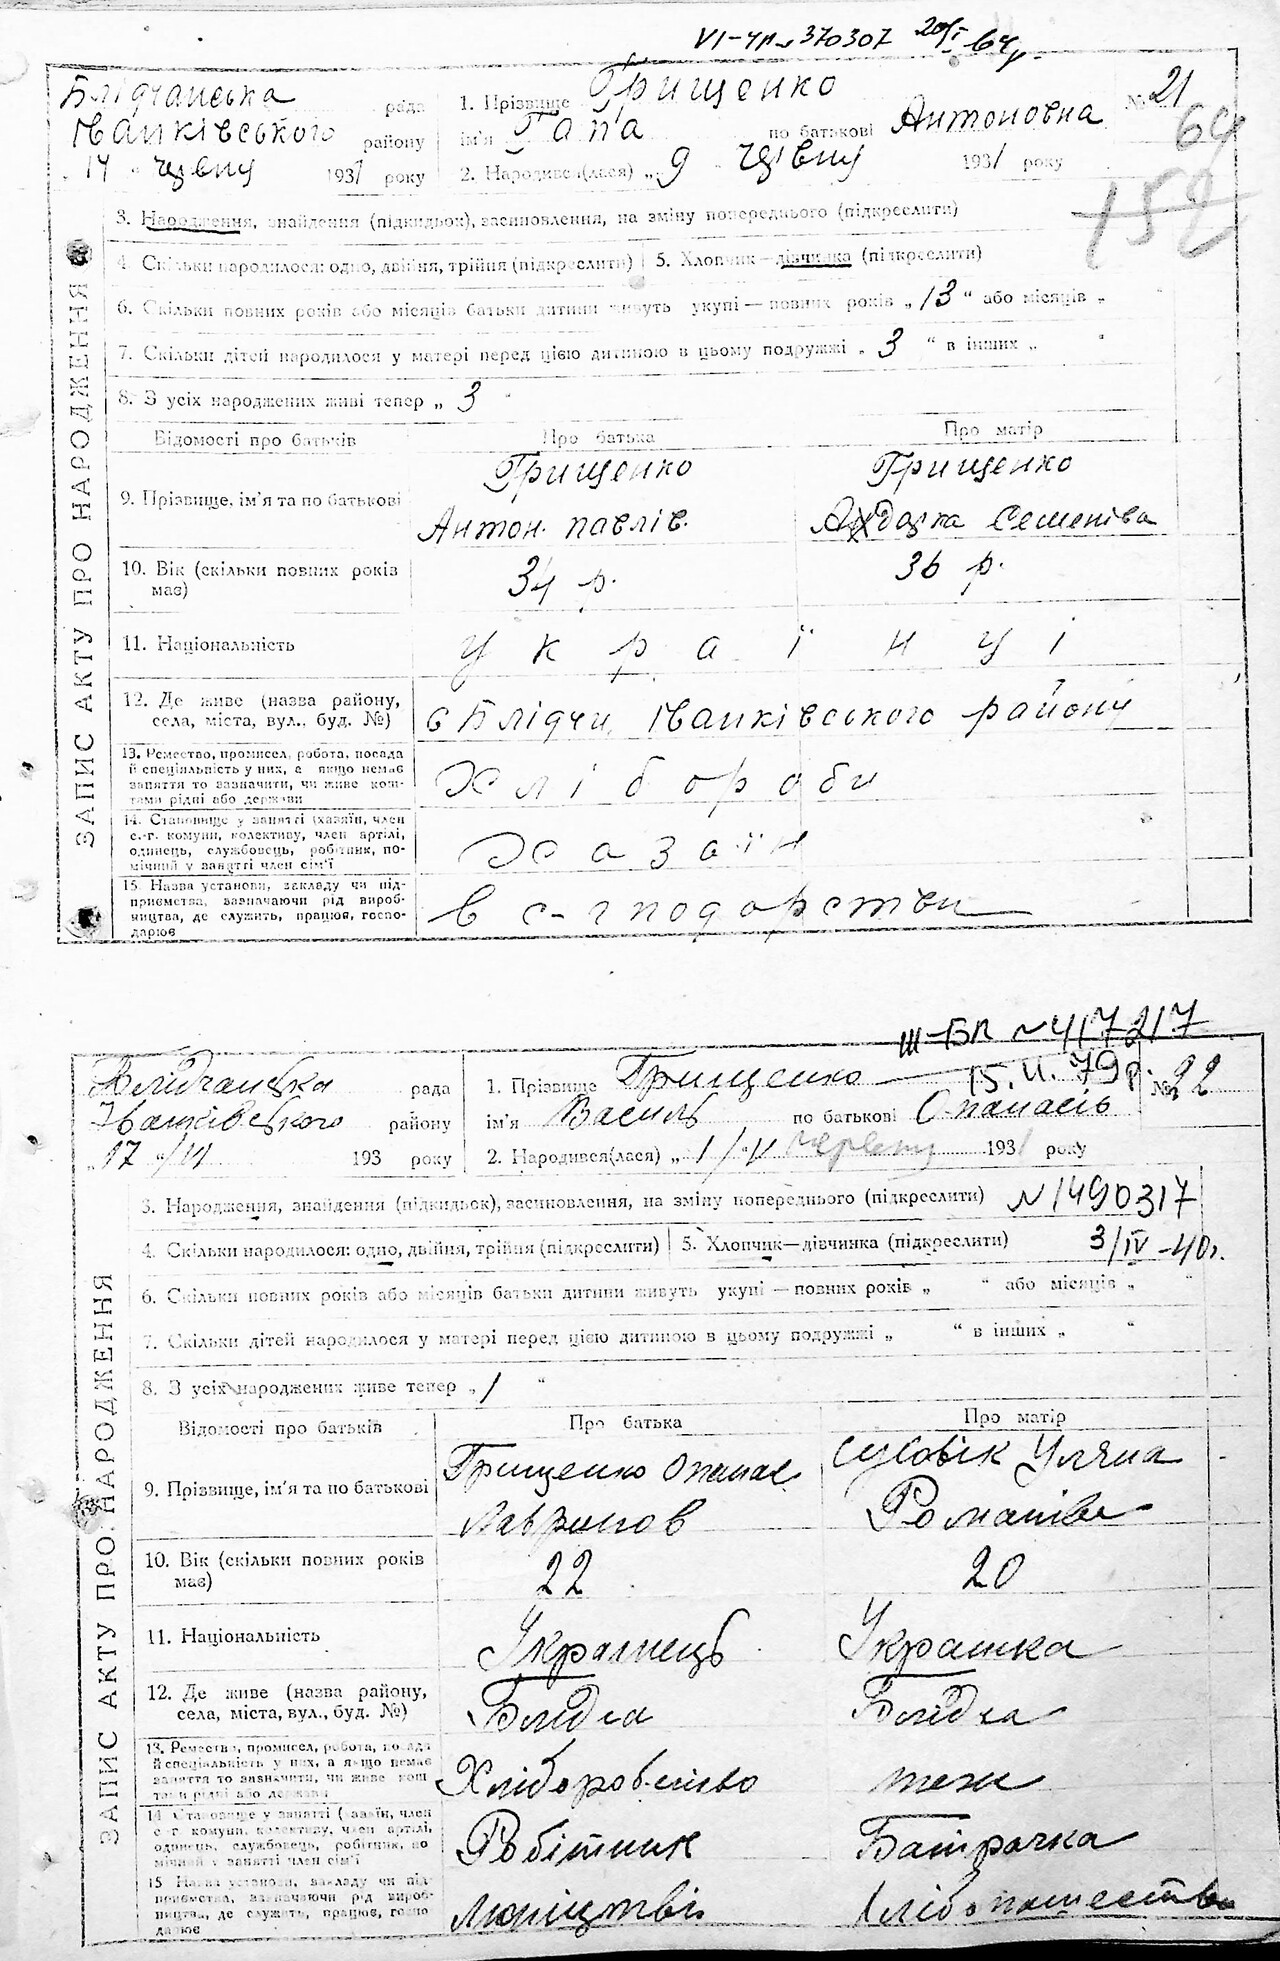 VI-ЧП № 370307 20/I-64р.
Блідчанська рада
Іванківського району
14 червня 1931 року
1. Прізвище Грищенко
ім'я Гапа по батькові Антоновна
№ 21
64
152
2. Народився(лася) „ 9 червня 1931 року
3. Народження, знайдення (підкидьок), засиновлення, на зміну попереднього (підкреслити)
4. Скільки народилося: одно, двійня, трійня (підкреслити) 5. Хлопчик—дівчинка (підкреслити)
6. Скільки повних років або місяців батьки дитини живуть укупі — повних років „ 13 “ або місяців „
7. Скільки дітей народилося у матері перед цією дитиною в цьому подружжі „ 3 “ в інших „ “
8. З усіх народжених живі тепер „ 3 “
Відомості про батьків Про батька Про матір
9. Прізвище, ім'я та по батькові
Грищенко Грищенко
Антон. Павлів. Семенівa
10. Вік (скільки повних років має) 34 р. 36 р.
11. Національність українці
12. Де живе (назва району, села, міста, вул., буд. №) с Блідчи, Іванківського району
13. Ремество, промисел, робота, посада
й спеціяльність у них, а якщо немає
заняття то зазначити, чи живе кош-
тами рідні або держави
Хлібороби
14. Становище у занятті (хазяїн, член
с.-г. комуни, колективу, член артілі,
одинець, службовець, робітник, по-
мічний у занятті член сім'ї
Хазаїн
15. Назва установи, закладу чи під-
приємства, зазначаючи рід вироб-
ництва, де служить, працює, госпо-
дарює
в с-господорстви
ЗАПИС АКТУ ПРО НАРОДЖЕННЯ
III-БП № 417217
15.II.79р.
Блідчанська рада
Іванківського району
„17“/VI 193 року
1. Прізвище Грищенко
ім'я Василь по батькові Опанасів
№ 22
2. Народився(лася) „ 1/VI червня 1931 року
3. Народження, знайдення (підкидьок), засиновлення, на зміну попереднього (підкреслити) № 1490317
4. Скільки народилося: одно, двійня, трійня (підкреслити) 5. Хлопчик—дівчинка (підкреслити) 3/IV-40г.
6. Скільки повних років або місяців батьки дитини живуть укупі — повних років „ “ або місяців „ “
7. Скільки дітей народилося у матері перед цією дитиною в цьому подружжі „ “ в інших „ “
8. З усіх народжених живе тепер „ 1 “
Відомості про батьків Про батька Про матір
9. Прізвище, ім'я та по батькові
Грищенко Опанас Уляна
Романівна
10. Вік (скільки повних років має) 22 20
11. Національність Українець Українка
12. Де живе (назва району, села, міста, вул., буд. №) Блідча Блідча
13. Ремество, промисел, робота, посада
й спеціяльність у них, а якщо немає
заняття то зазначити, чи живе кош-
тами рідні або держави
Хліборобство тежи
14. Становище у занятті (хазяїн, член
с-г комуни, колективу, член артілі,
одинець, службовець, робітник, по
мічний у занятті член сім'ї
Робітник Батрачка
15. Назва установи, закладу чи під
приємства, зазначаючи рід вироб-
ництва, де служить, працює, госпо
дарює
Хлібопашество
ЗАПИС АКТУ ПРО НАРОДЖЕННЯ